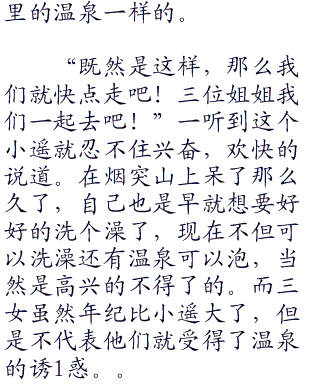 里的温泉一样的。
“既然是这样，那么我
们就快点走吧！三位姐姐我
们一起去吧！”一听到这个
小遥就忍不住兴奋，欢快的
说道。在烟突山上呆了那么
久了，自己也是早就想要好
好的洗个澡了，现在不但可
以洗澡还有温泉可以泡，当
然是高兴的不得了的。而三
女虽然年纪比小遥大了，但
是不代表他们就受得了温泉
的诱1惑。。